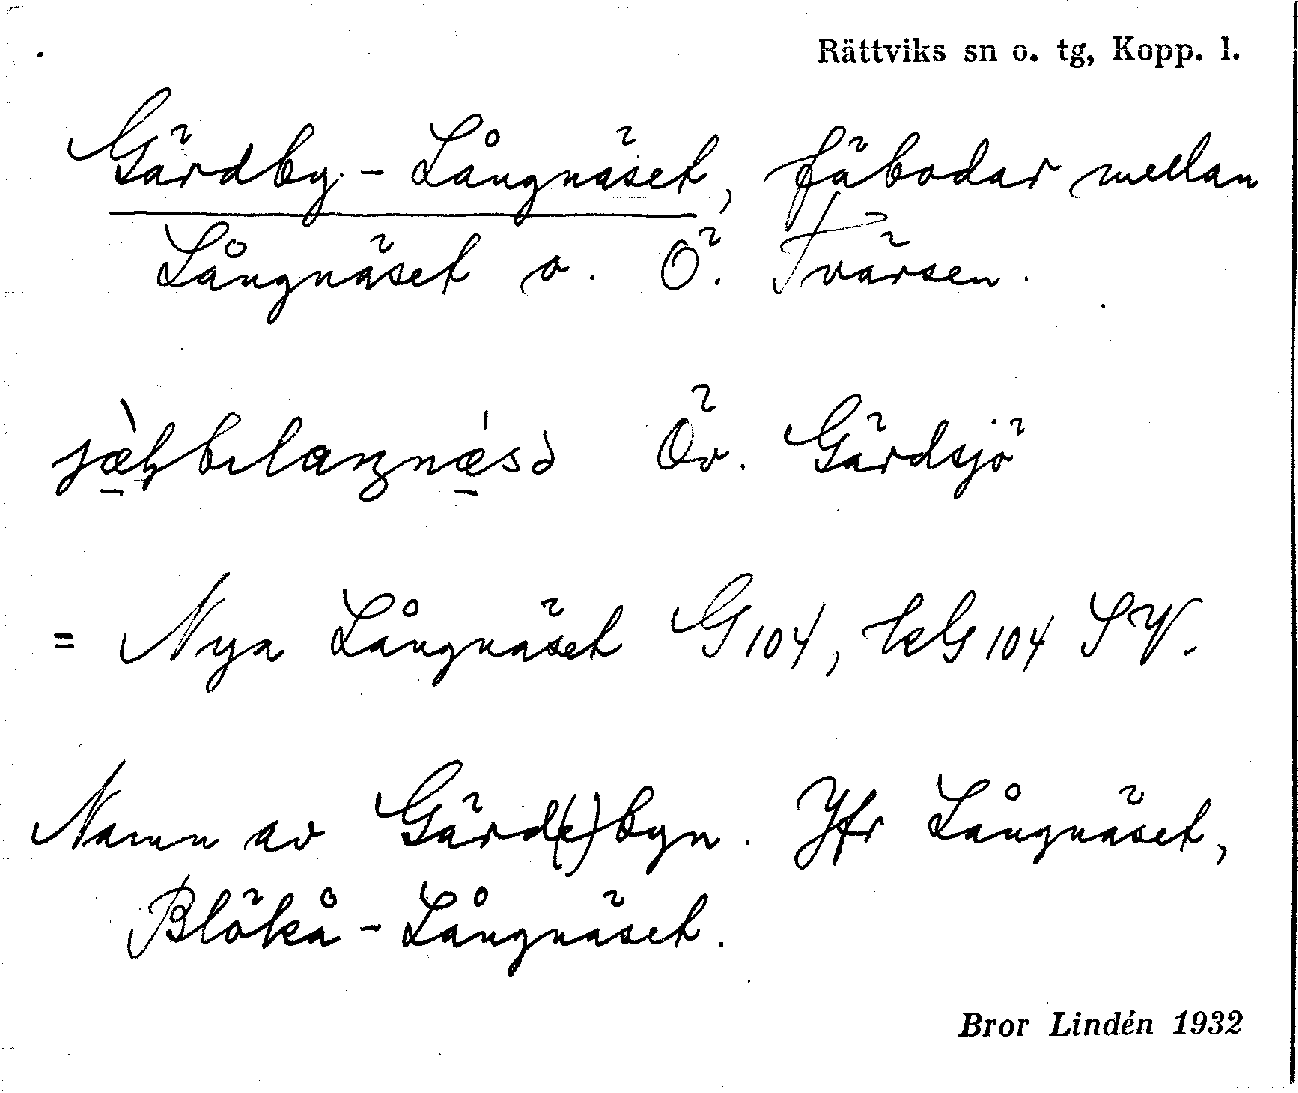 Rättviks sn o. tg, Kopp. l.
Gärdby-Långnäset, fäbodar mellan
Långnäset o. Ö. Tvärsen.
Öv. Gärdsjö
= Nya Långnäset G104, kG104 SV.
Namn av Gärd(e)byn. Jfr Långnäset,
Blökå-Långnäset.
Bror Lindén 1932